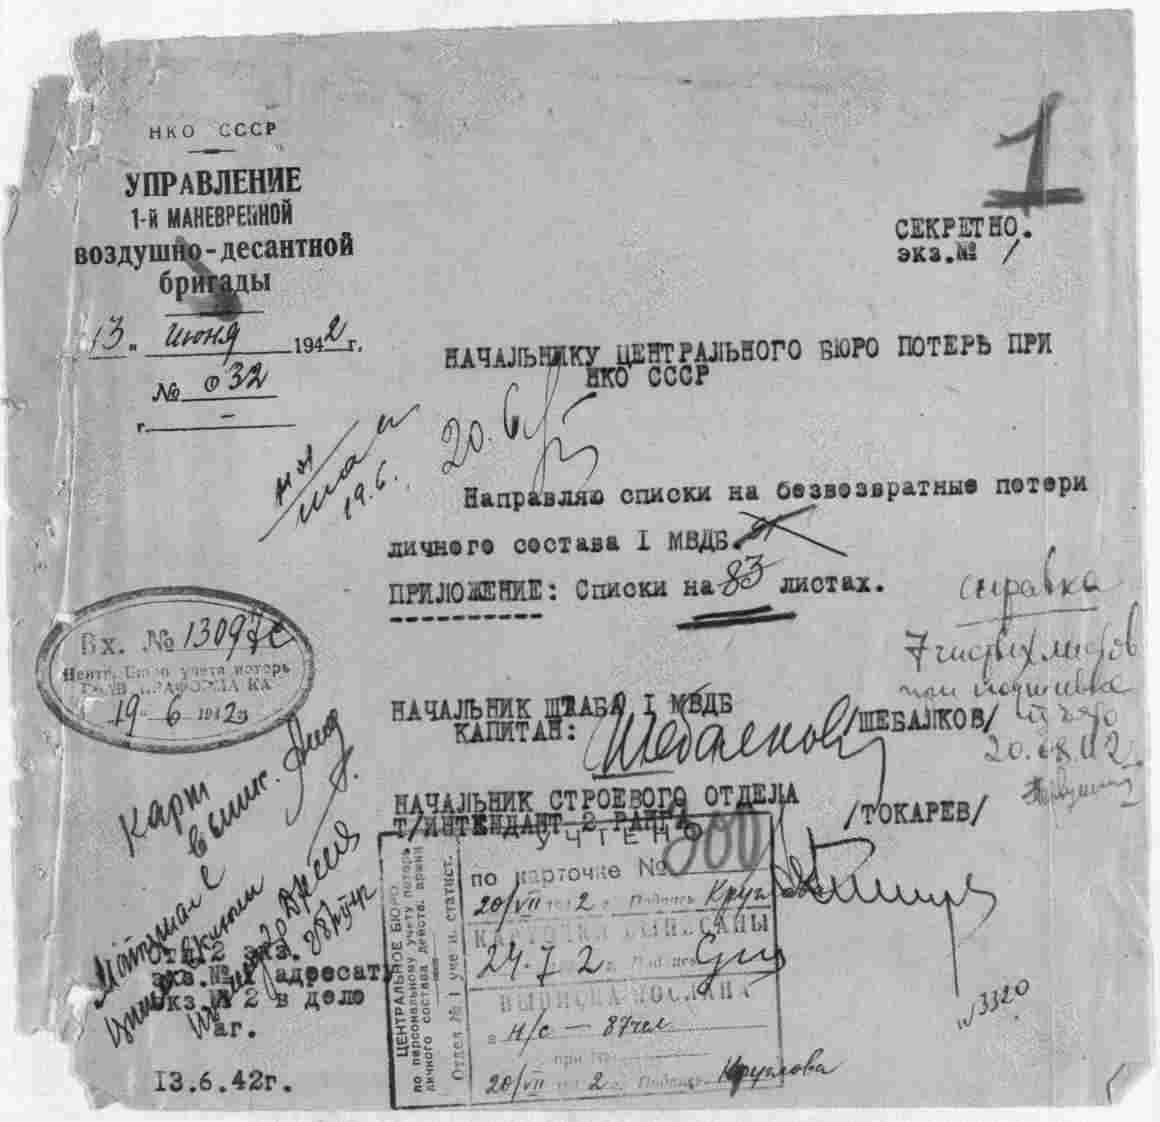 НКО СССР
УПРАВЛЕНИЕ
1-й МАНЕВРЕННОЙ
воздушно-десантной
бригады
„13„ июня 1942 г.
№ 032
г. -
1
СЕКРЕТНО.
экз.№ 1
НАЧАЛЬНИКУ ЦЕНТРАЛЬНОГО БЮРО ПОТЕРЬ ПРИ
НКО СССР
20.6
19.6.
Направляю списки на безвозвратные потери
личного состава I МВДБ.
ПРИЛОЖЕНИЕ: Списки на 83 листах.
справка
7 чистых листов
при подшивке
изъято
Вх. № 13097с
Центр. Бюро учета потерь
19 6 1942г
НАЧАЛЬНИК ШТАБА I МВДБ
КАПИТАН: Шебалков /ШЕБАЛКОВ/
НАЧАЛЬНИК СТРОЕВОГО ОТДЕЛА
Т/ИНТЕНДАНТ 2 РАНГА /ТОКАРЕВ/
Карт
ЦЕНТРАЛЬНОЕ БЮРО
по персональному учету потерь
личного состава действ. армии
Отдел № 1 учета и статист.
УЧТЕНО
по карточке № 200
20/VII 1942 г. Подпись Круг
КАРТОЧКИ ВЫПИСАНЫ
24-7 2 г. Подпись
ВЫПИСКА ПОСЛАНА
в н/с — 87чел
при №
20/VII 1942 г. Подпись Круглова
Отп. 2 экз.
Экз.№ 1 адресату
Экз № 2 в дело
аг.
13.6.42г.
и 3320